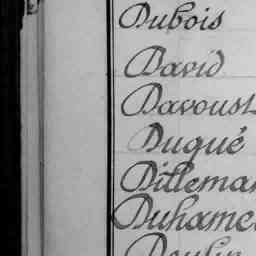 Dubois
David
Davoust
Duqué
Dilleman
Duhamel